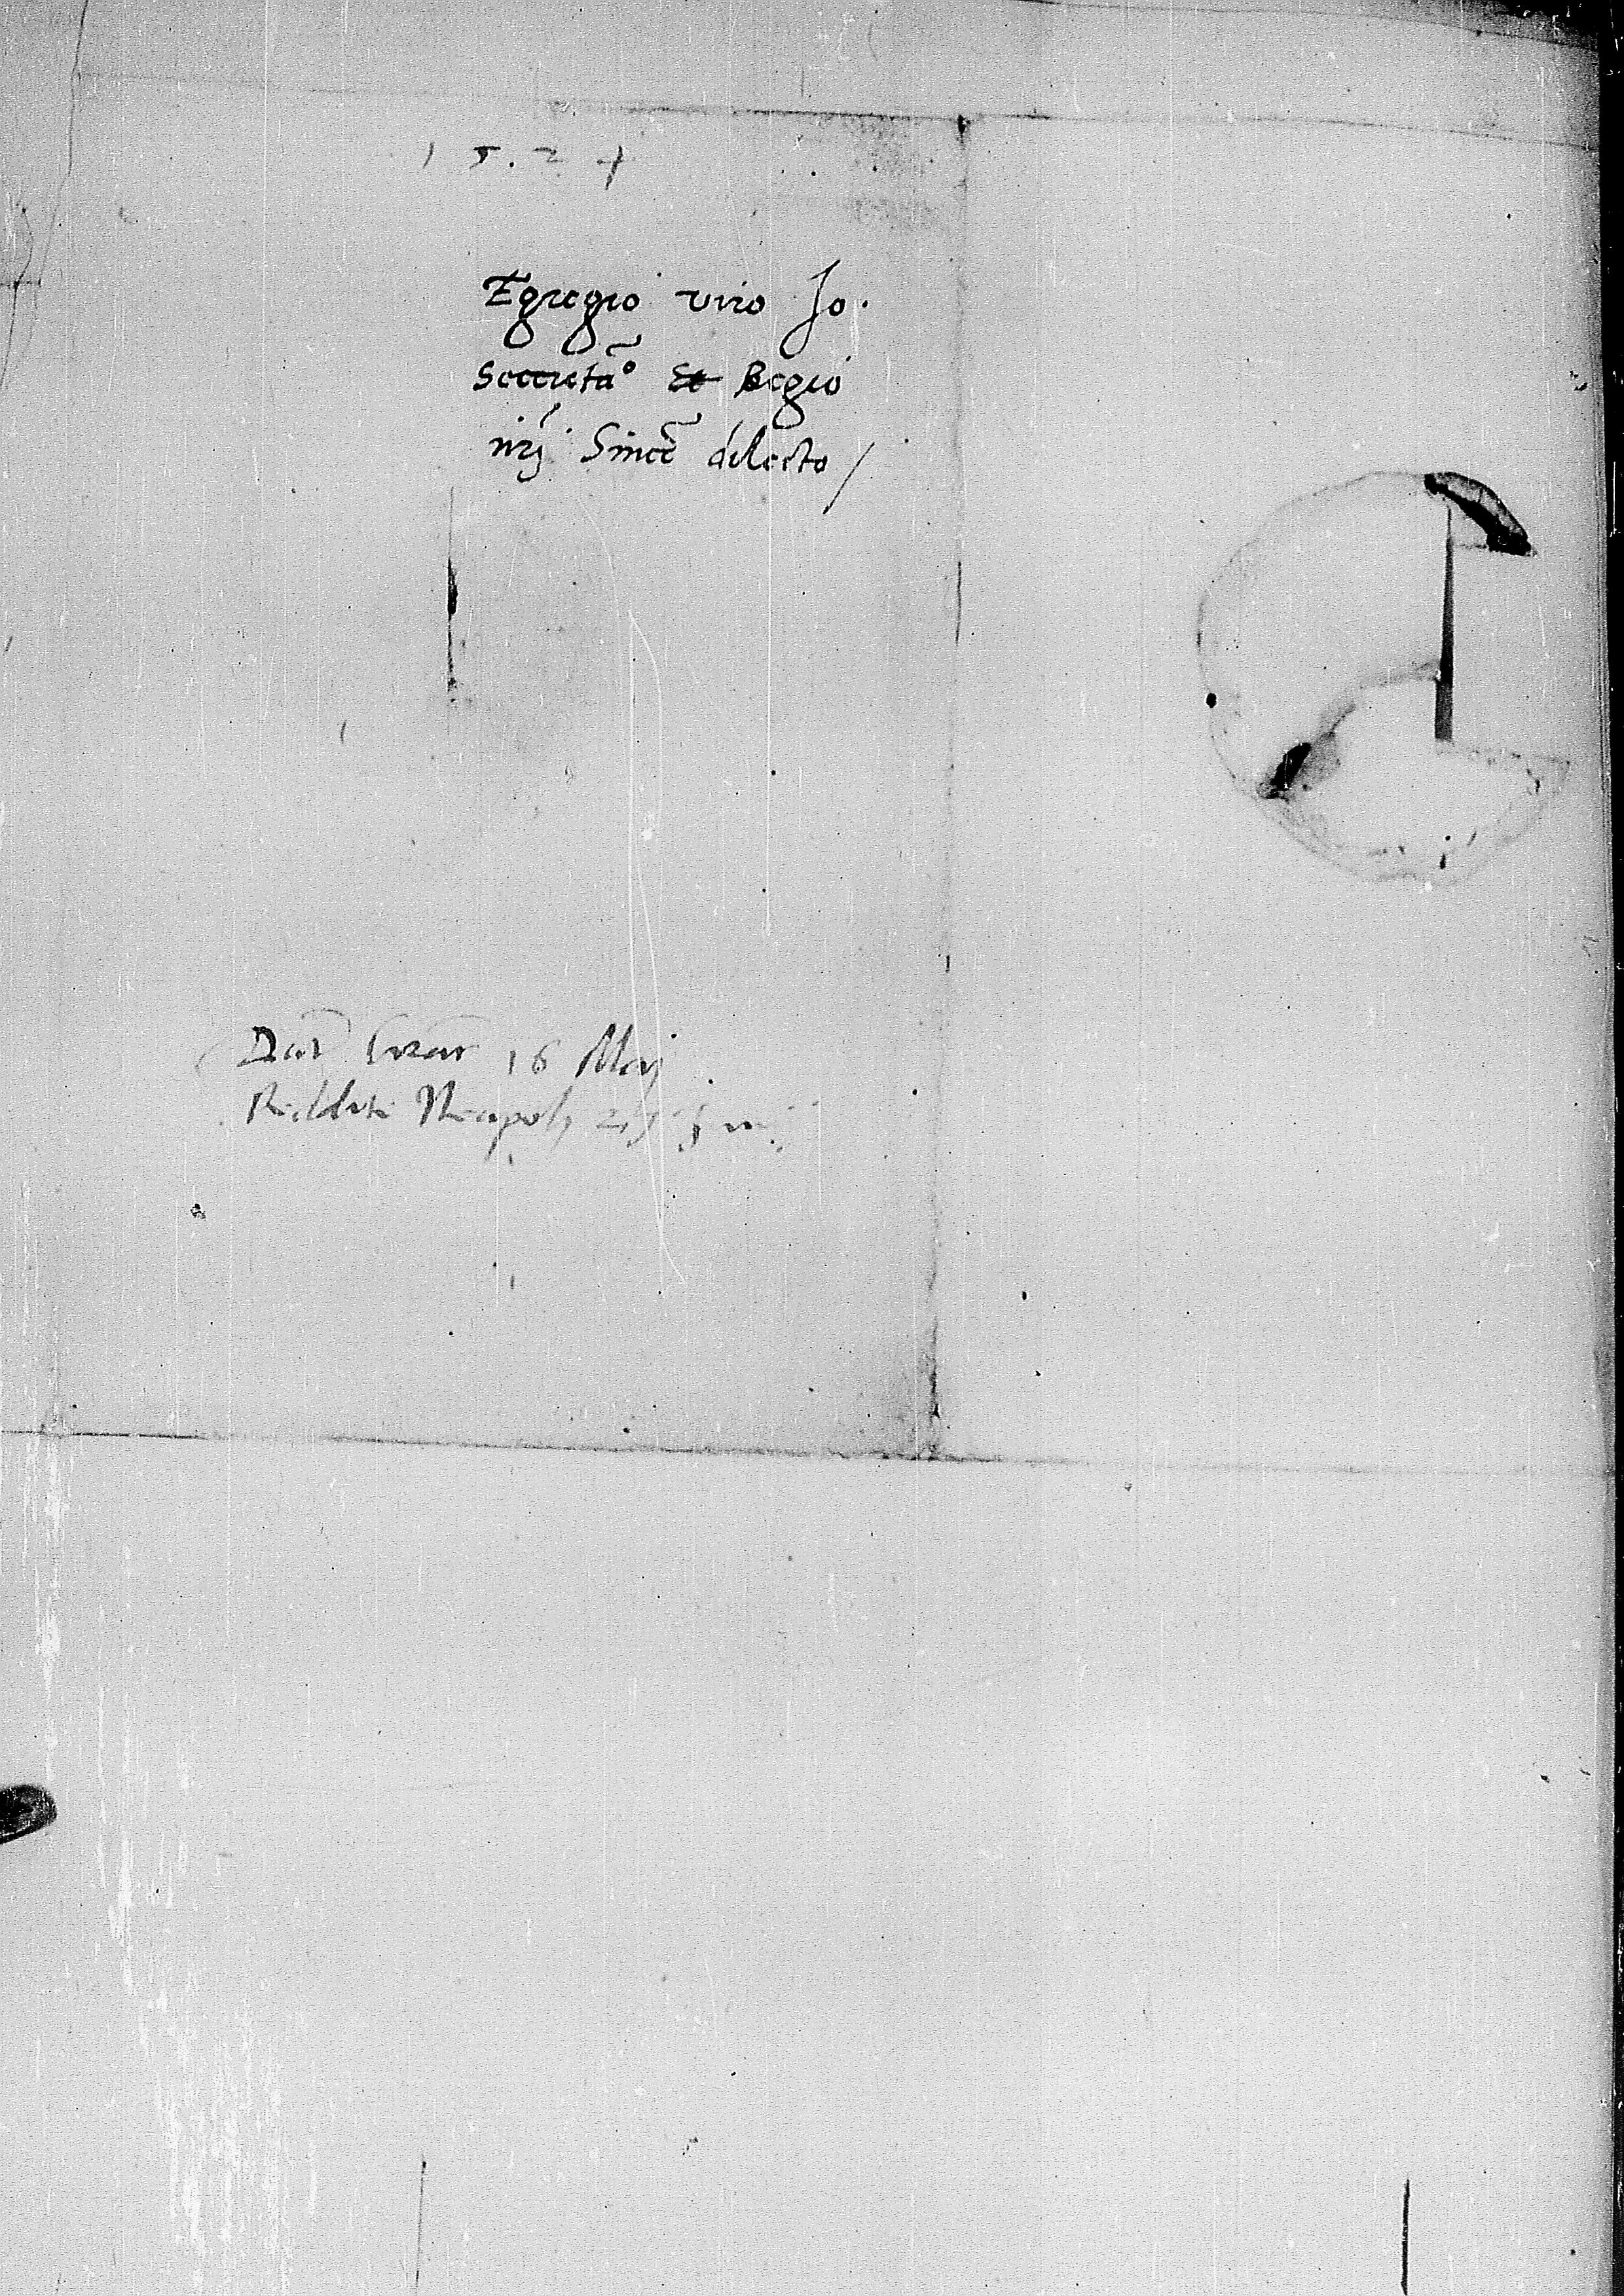 1 5. 2 4
Egregio viro Jo.
Secretaº Et Regio
nrj Sincē dilecto /
Dat Crac 16 Maj
Reddite Neapoli 24